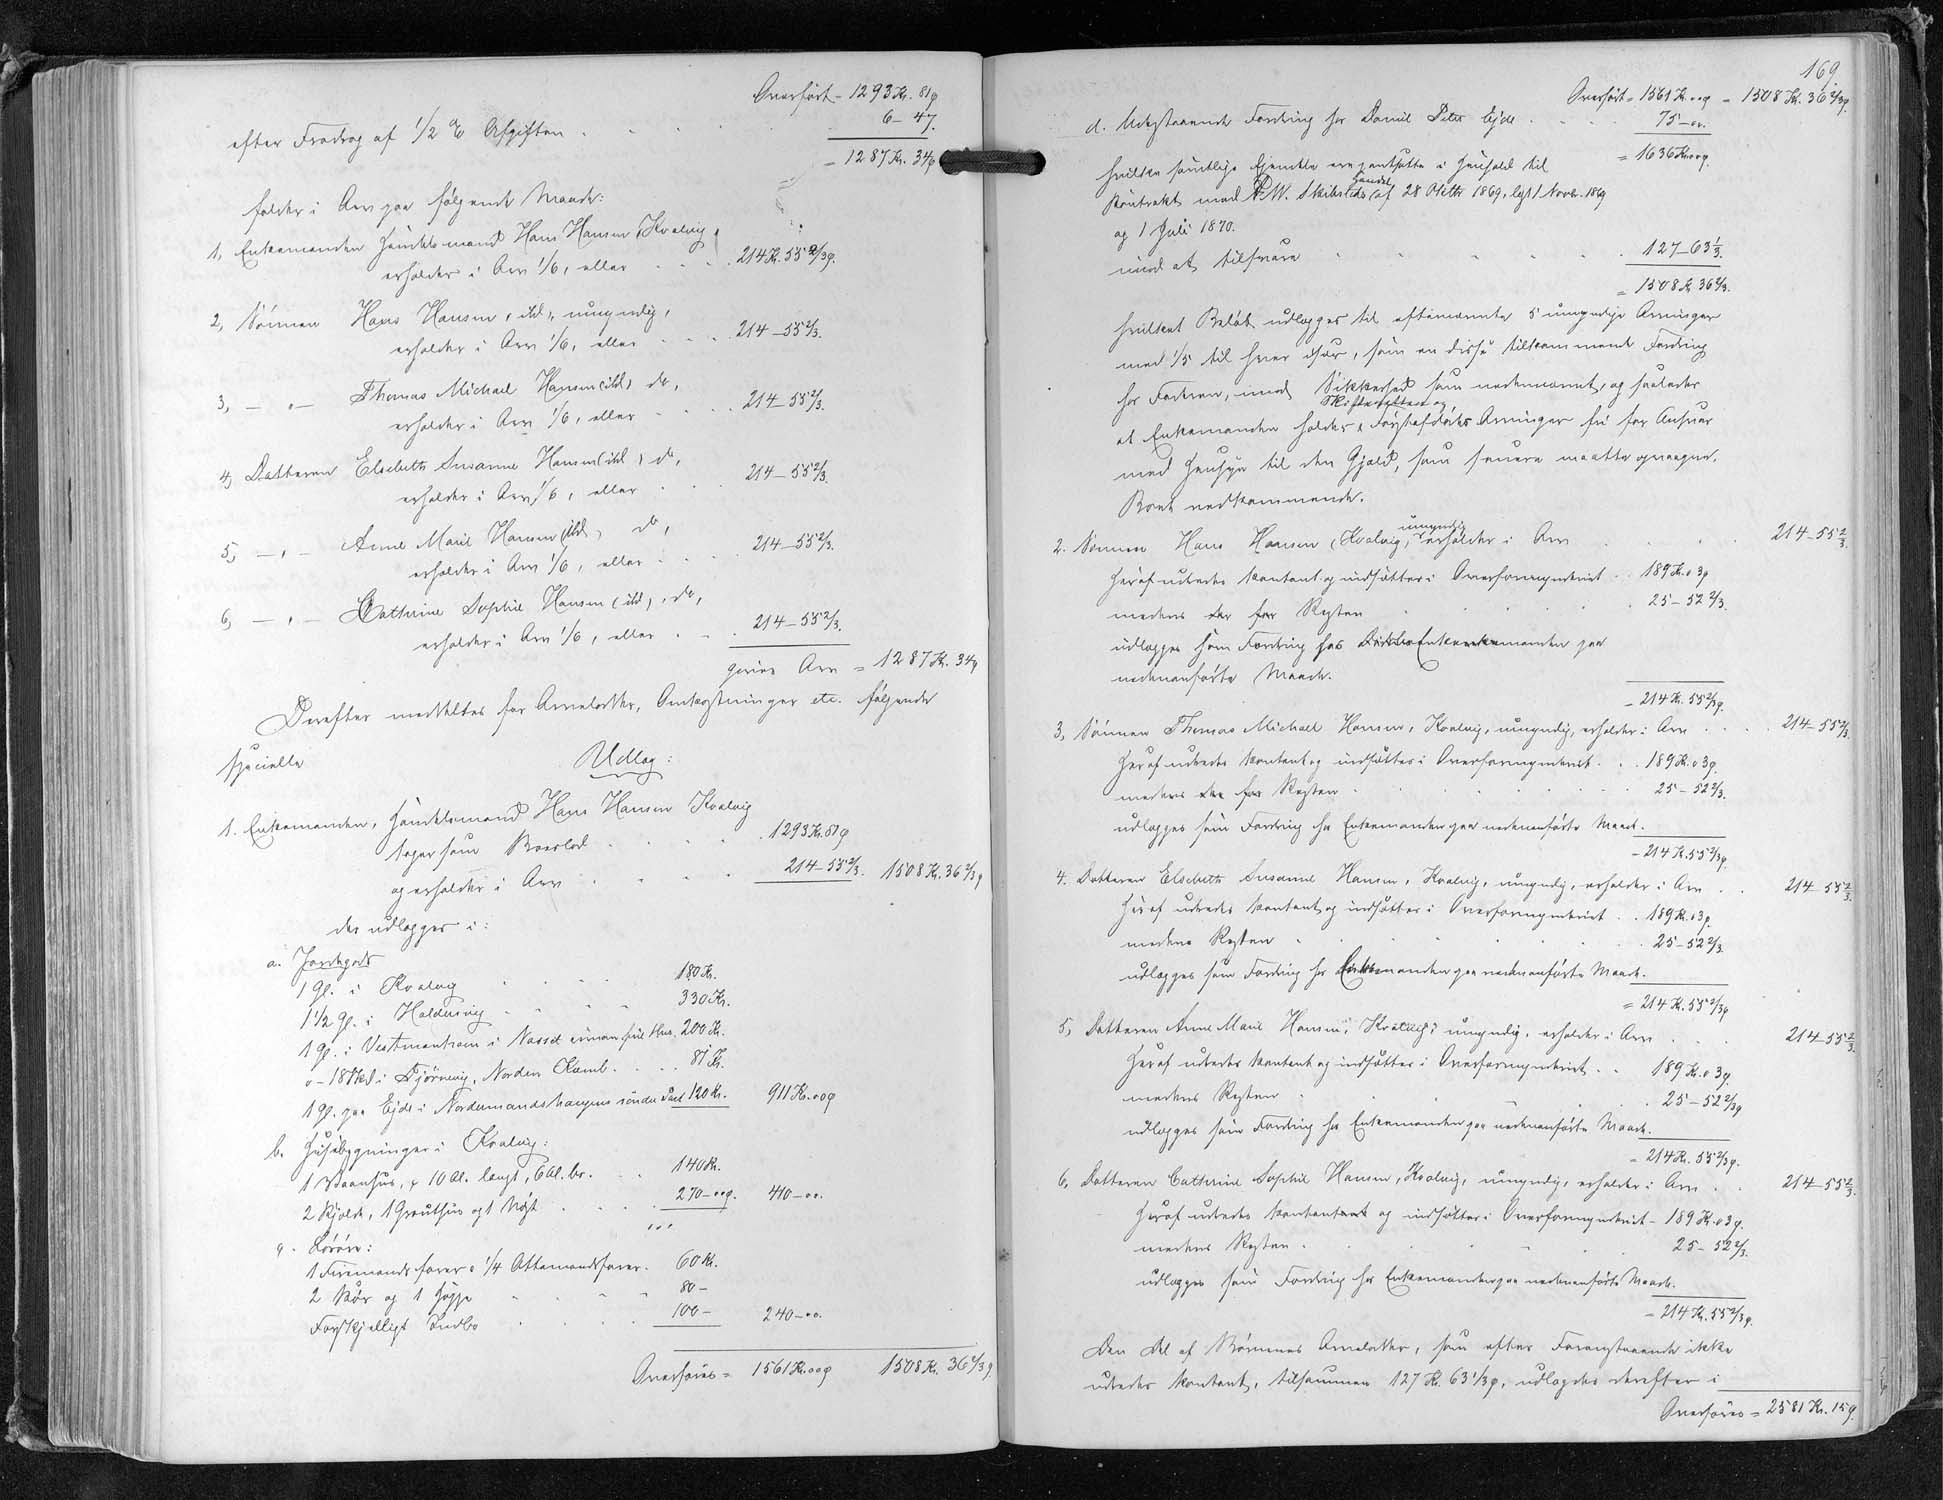 Overført = 1293 Kr. 81 ø
efter Fradrag af 1/2 % Afgiften . . . 6 – 47.
= 1287 Kr. 34 ø
falder i Arv paa følgende Maade:
1, Enkemanden Handelsmand Hans Hansen, Kvalvig,
erholder i Arv 1/6, eller . . . 214 Kr. 55 2/3 ø.
2, Sønnen Hans Hansen, ibd., umyndig,
erholder i Arv 1/6, eller . . . 214 – 55 2/3.
3, – „ – Thomas Michael Hansen (ibd) do,
erholder i Arv 1/6, eller . . . 214 – 55 2/3.
4, Datteren Elsebeth Susanne Hansen (ibd) do,
erholder i Arv 1/6, eller . . . 214 – 55 2/3.
5, – „ – Anne Marie Hansen (ibd) do,
erholder i Arv 1/6, eller . . . 214 – 55 2/3.
6, – „ – Cathrine Sophie Hansen (ibd), do,
erholder i Arv 1/6, eller . . . 214 – 55 2/3.
Arv = 1287 Kr. 34 ø
Derefter meddeltes for Arvelodder, Omkostninger etc. følgende
specielle
Udlæg:
1. Enkemanden, Handelsmand Hans Hansen Kvalvig
tager som Boeslod . . . 1293 Kr. 81 ø
og erholder i Arv . . . 214 – 55 2/3. 1508 Kr. 36 2/3 ø
der udlægges i:
a. Jordegods
1 Gl. i Kvalvig . . . 180 Kr.
1 1/2 Gl. i Haldersvig . . . 330 Kr.
1 Gl. i Vestmanhavn i Nesset 200 Kr.
0 – 18 Skd i Tjørnevig, Norden . . . 81 Kr.
1 Gl. paa Ejde i Nordermandshaugens søndre Part 120 Kr. 911 Kr. 00 ø
b. Husebygninger i Kvalvig:
1 Vaanhus, 10 Al. langt, 6 Al. br. . . 140 Kr.
2 Hjalde, 1 Grouthus og 1 Nøst . . . 270 – 00 ø. 410 – 00.
c. Løsøre:
1 Firemandsfarer & 1/4 Ottemandsfarer. 60 Kr.
2 Køer og 1 Hoppe . . . 80 –
Forskjelligt Indbo . . . 100 – 240 – 00.
Overføres = 1561 Kr. 00 ø 1508 Kr. 36 2/3 ø
169
Overført = 1561 Kr. 00 ø = 1508 Kr. 36 2/3 ø.
d. Udestaaende Fordring hos Daniel Peter Ejde . . . 75 – 00.
= 1636 Kr. 00 ø.
hvilke samtlige Ejendele ere pantsatte i Henhold til
Handel
Kontrakt med af 28 Oktbr 1869, lyst 1 Novbr. 1869
og 1 Juli 1870.
mod at tilsvare . . . 127 – 63 1/3.
= 1508 Kr. 36 2/3.
hvilket Beløb udlægges til eftennævnte 5 umyndige Arvinger
med 1/5 til hver især, som en disse tilkommende Fordring
hos Faderen, mod Sikkerhed som nedennævnt, og saaledes
Skifteretten og
at Enkemanden holder Førstafdødes Arvinger fri for Ansvar
med Hensyn til den Gjæld, som senere maatte opsaagne,
Boet vedkommende.
umyndig
2. Sønnen Hans Hansen, Kvalvig, erholder i Arv . . . 214 – 55 2/3.
Heraf udredes kontant og indsættes i Overformynderiet . . 189 Kr. 03 ø
medens for Resten . . . 25 – 52 2/3.
udlægges som Fordring hos Enkemanden paa
nedenanførte Maade.
= 214 Kr. 55 2/3 ø.
3, Sønnen Thomas Michael Hansen, Kvalvig, umyndig, erholder i Arv . . . 214 – 55 2/3.
Heraf udredes kontant og indsættes i Overformynderiet . . 189 Kr. 03 ø.
medens for Resten . . . 25 – 52 2/3.
udlægges som Fordring hos Enkemanden paa nedenanførte Maade.
= 214 Kr. 55 2/3 ø.
4. Datteren Elsebeth Susanne Hansen, Kvalvig, umyndig, erholder i Arv . . 214 – 55 2/3.
Heraf udredes kontant og indsættes i Overformynderiet . . 189 Kr. 03 ø.
medens Resten . . . 25 – 52 2/3
udlægges som Fordring hos Enkemanden paa nedenanførte Maade.
= 214 Kr. 55 2/3 ø
5, Datteren Anne Marie Hansen, Kvalvig, umyndig, erholder i Arv . . . 214 – 55 2/3.
Heraf udredes kontant og indsættes i Overformynderiet . . 189 Kr. 03 ø.
medens Resten . . . 25 – 52 2/3 ø
udlægges som Fordring hos Enkemanden paa nedenanførte Maade.
= 214 Kr. 55 2/3 ø.
6, Datteren Cathrine Sophie Hansen, Kvalvig, umyndig, erholder i Arv . . 214 – 55 2/3.
Heraf udredes kontant og indsættes i Overformynderiet – 189 Kr. 03 ø.
medens Resten . . . 25 – 52 2/3.
udlægges som Fordring hos Enkemanden paa nedenanførte Maade.
= 214 Kr. 55 2/3 ø.
Den Del af Børnenes Arvelodder, som efter Foranstaaende ikke
udredes kontant, tilsammen 127 Kr. 63 1/3 ø, udlægges derefter i
Overføres = 2581 Kr. 15 ø.